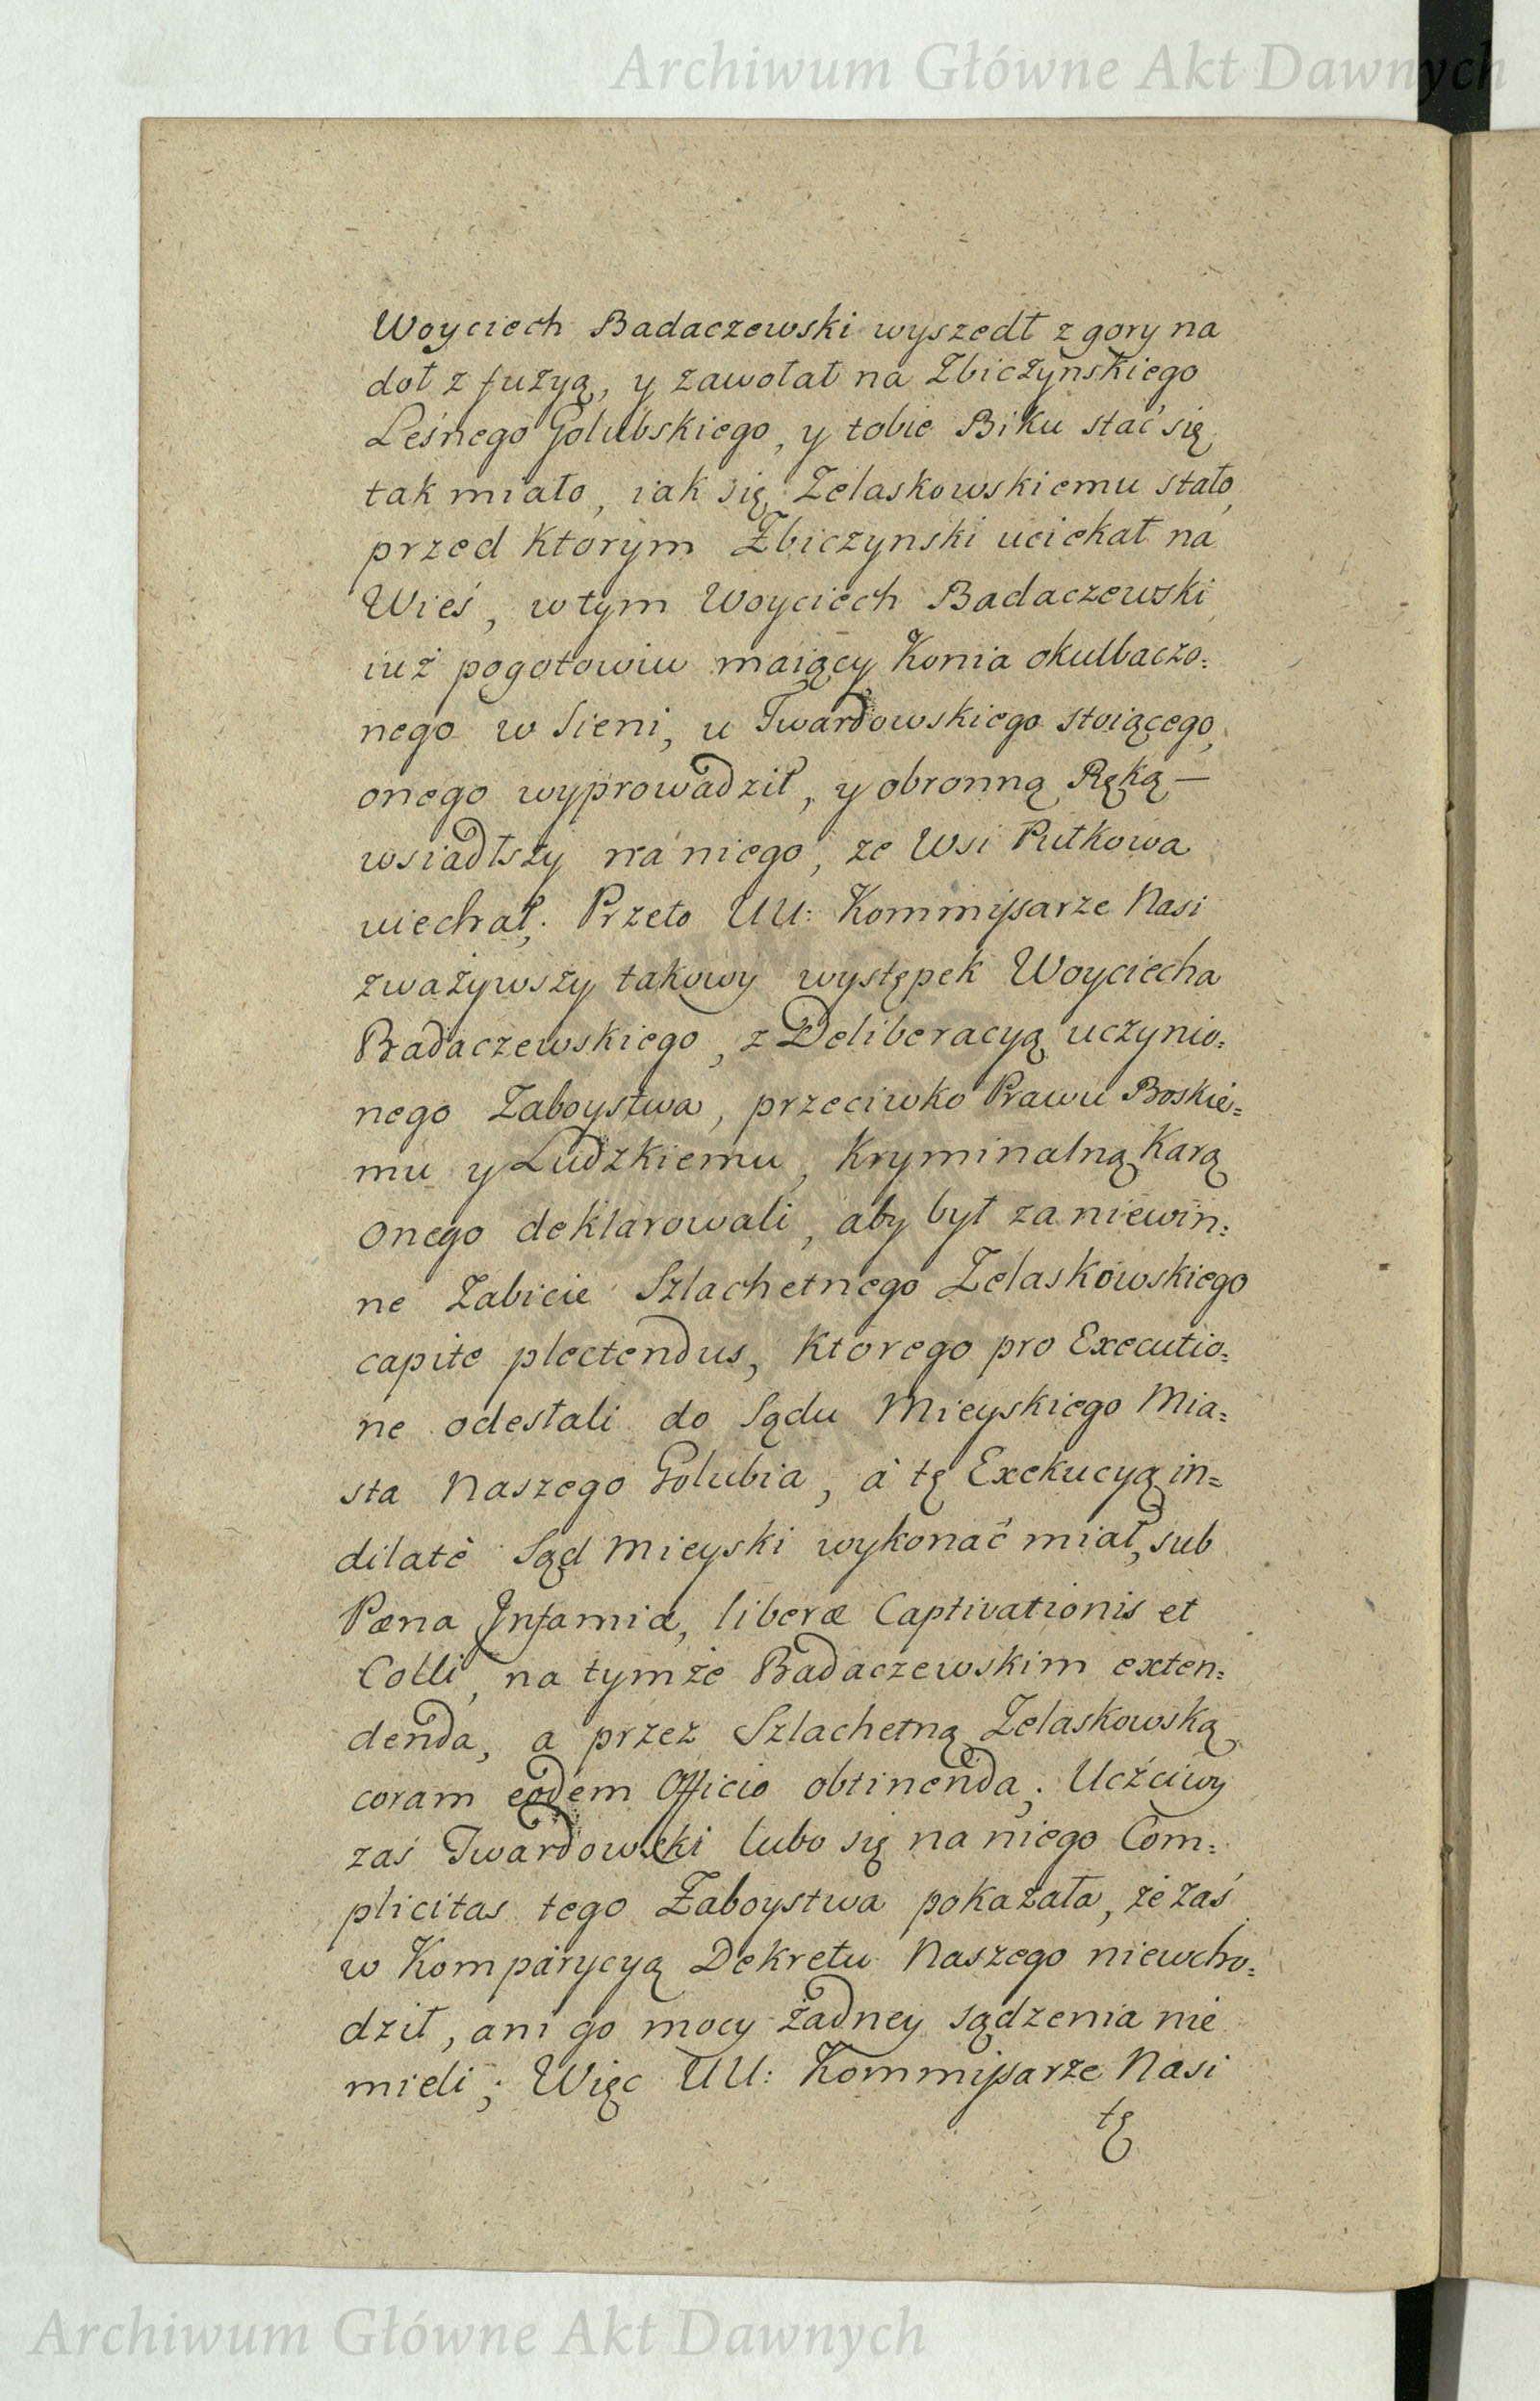 Archiwum Główne Akt Dawnych
Woyciech Badaczewski wyszedł z gory na
doł z fuzyą, y zawołał na Zbiczynskiego
Leśnego Golubskiego, y tobie Biku stać się
tak miało, iak się Zelaskowskiemu stało,
przed ktorym Zbiczynski uciekał na
Wieś, w tym Woyciech Badaczewski
iuż pogotowiu maiący Konia okulbaczo=
nego w Sieni, u Twardowskiego stoiącego,
onego wyprowadził, y obronną Ręką —
wsiadłszy na niego, ze Wsi Putkowa
uiechał; Przeto UU: Kommissarze Nasi
zważywszy takowy występek Woyciecha
Badaczewskiego, z Deliberacyą uczynio=
nego Zaboystwa, przeciwko Prawu Boskie=
mu y Ludzkiemu, Kryminalną Karą
onego deklarowali, aby był za niewin=
ne Zabicie Szlachetnego Zelaskowskiego
capite plectendus, ktorego pro Executio=
ne odesłali do Sądu Mieyskiego Mia=
sta Naszego Golubia, à tę Exekucyą in=
dilatè Sąd Mieyski wykonać miał, sub
Pœna Jnfamiæ, liberæ Captivationis et
Colli, na tymże Badaczewskim exten=
denda, a przez Szlachetną Zelaskowską
coram eodem Officio obtinenda; Uczciwy
zaś Twardowski lubo się na niego Com=
plicitas tego Zaboystwa pokazała, że zaś
w Komparycyą Dekretu Naszego niewcho=
dził, ani go mocy żadney sądzenia nie
mieli; Więc UU: Kommissarze Nasi
tę
Archiwum Główne Akt Dawnych